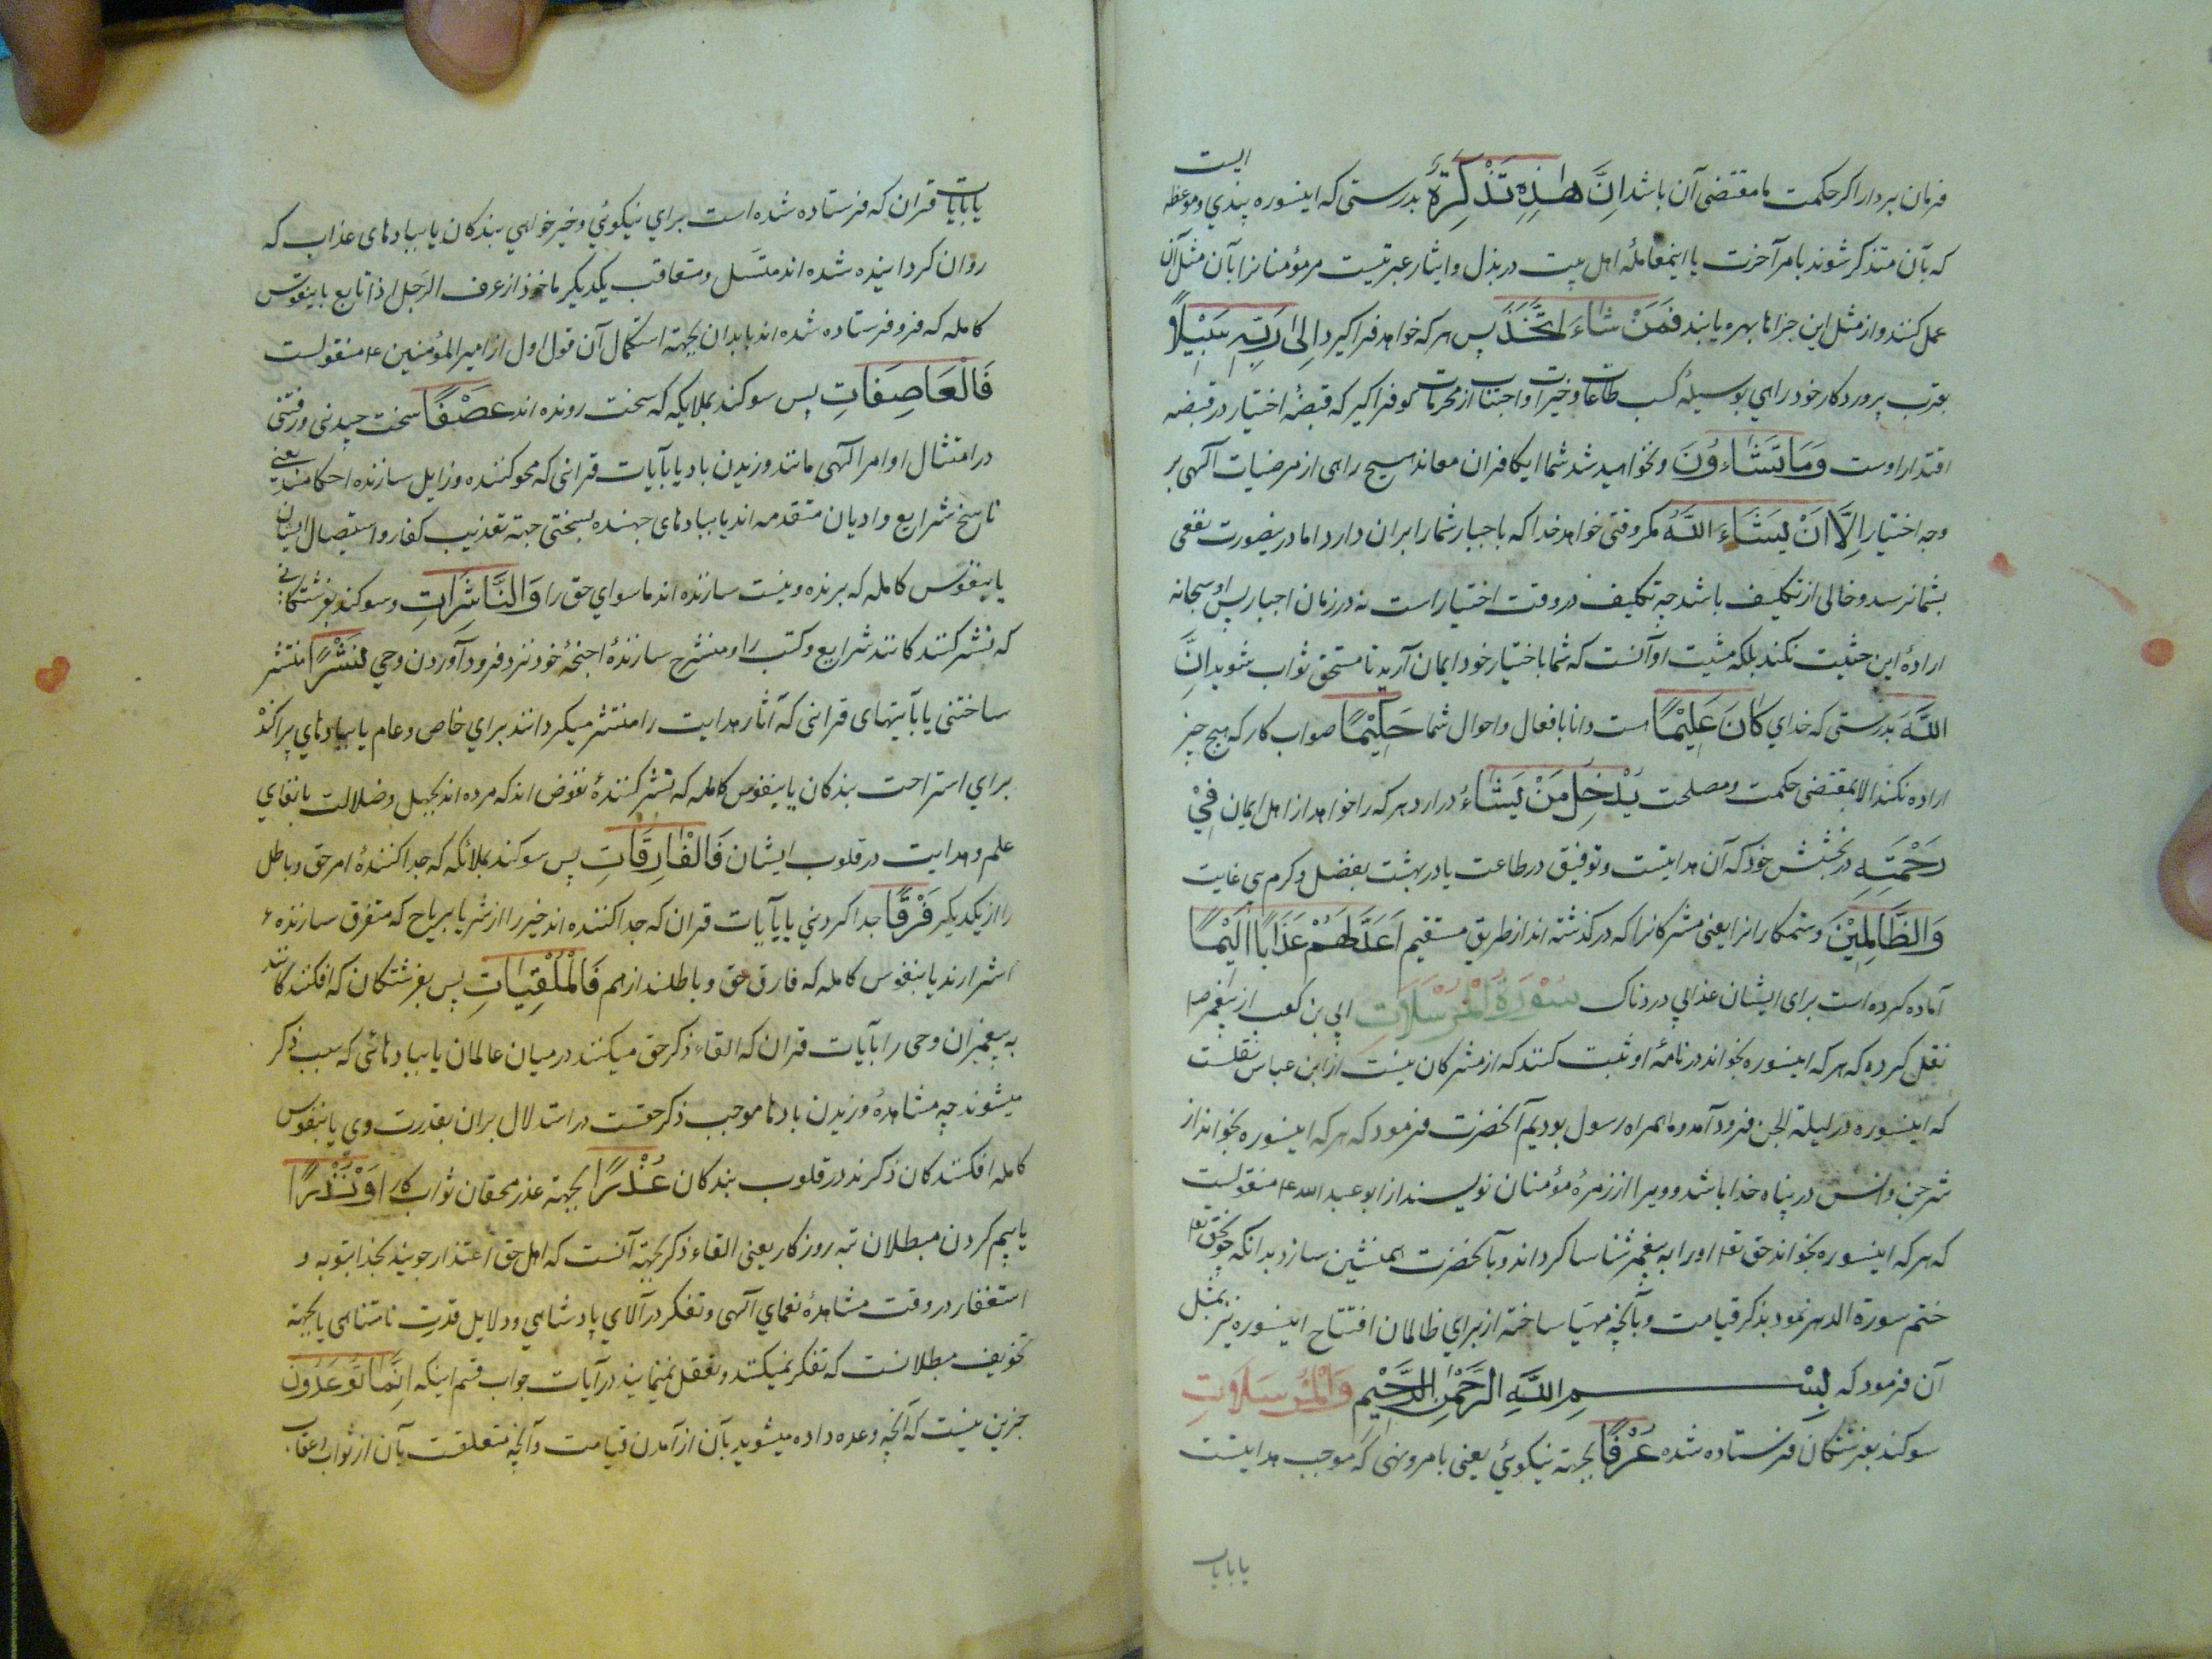 فرمان بردار اکر حکمت ما مقتضی آن باشد اِنَّ هٰذِهِ تَذْكِرَةٌ بدرستی که اینسوره پندی و موعظه ایست
که بآن متذکر شوند بامر آخرت یا اینمعامله اهل بیت در بذل و ایثار عبرتیست مر مؤمنانرا بآن مثل آن
عمل کنند و از مثل این جزاها بهره یابند فَمَنْ شَاءَ اتَّخَذَ پس هر که خواهد فرا کیرد اِلىٰ رَبِّهِ سَبِيْلًا
بقرب پروردکار خود راهی بوسیلهٔ کسب طاعات و خیرات و اجتناب از محرمات کو فرا کیر که قبضهٔ اختیار در قبضه
اقتدار اوست وَمَا تَشَاءُوْنَ و نخواهید شد شما ایکافران معاند هیچ راهی از مرضیات آلهی بر
وجه اختیار اِلَّا اَنْ يَشَاءَ اللّٰهُ مکر وقتی خواهد خدا که باجبار شما را بران دارد اما درینصورت نفعی
بشما نرسد و خالی از تکلیف باشد چه تکلیف در وقت اختیار است نه در زمان اجبار پس او سبحانه
ارادهٔ این مشیت نکند بلکه مشیت او آنست که شما باختیار خود ایمان آرید تا مستحق ثواب شوید اِنَّ
اللّٰهَ بدرستی که خدای كَانَ عَلِيْمًا هست دانا بافعال و احوال شما حَكِيْمًا صواب کار که هیچ چیز
اراده نکند الا بمقتضی حکمت و مصلحت يُدْخِلُ مَنْ يَشَاءُ درارد هر که را خواهد از اهل ایمان فِيْ
رَحْمَتِهِ در بخشش خود که آن هدایتست و توفیق در طاعت یا در بهشت بفضل و کرم بی غایت
وَالظَّالِمِيْنَ و ستمکارانرا یعنی مشرکانرا که در کذشته اند از طریق مستقیم اَعَدَّ لَهُمْ عَذَابًا اَلِيْمًا
آماده کرده است برای ایشان عذابی دردناک سُوْرَةُ الْمُرْسَلَاتِ ابی بن کعب از پیغمبر ص
نقل کرده که هر که اینسوره بخواند در نامهٔ او ثبت کنند که از مشرکان نیست از ابن عباس نقلست
که اینسوره در لیلة الجن فرود آمد و ما همراه رسول بودیم آنحضرت فرمود که هر که اینسوره بخواند از
شر جن و انس در پناه خدا باشد و ویرا از زمرهٔ مؤمنان نویسند از ابو عبد الله ع منقولست
که هر که اینسوره بخواند حق تع اورا به پیغمبر شناسا کرداند و بآنحضرت همنشین سازد بدانکه چون حق تع
ختم سورة الدهر نمود بذکر قیامت و بآنچه مهیّا ساخته از برای ظالمان افتتاح اینسوره نیز بمثل
آن فرمود که بِسْمِ اللّٰهِ الرَّحْمٰنِ الرَّحِيْمِ وَالْمُرْسَلَاتِ
سوکند بفرشتکان فرستاده شده عُرْفًا بجهته نیکوئی یعنی بامر و نهی که موجب هدایتست
یا بآیات
یا بآیات قران که فرستاده شده است برای نیکوئی و خیر خواهی بندکان یا ببادهای عذاب که
روان کردانیده شده اند متسل و متعاقب یکدیکر ماخوذ از عرف الرجل اذا تابع یا بنفوس
کامله که فرو فرستاده شده اند بابدان بجهته استکمال آن قول اول از امیر المؤمنین ع منقولست
فَالْعَاصِفَاتِ پس سوکند بملایکه که سخت رونده اند عَصْفًا سخت جهیدنی و رفتنی
در امتثال اوامر آلهی مانند وزیدن باد یا بآیات قرانی که محو کننده و زایل سازنده احکامند یعنی
ناسخ شرایع و ادیان متقدمه اند یا ببادهای جهنده بسختی جهته تعذیب کفار و استیصال ایشان
یا بنفوس کامله که برنده و نیست سازنده اند ماسوای حق را وَالنَّاشِرَاتِ و سوکند بفرشتکانی
که نشر کنندکانند شرایع و کتب را و منشرح سازندهٔ اجنحهٔ خود نزد فرود آوردن وحی نَشْرًا منتشر
ساختنی یا بآیتهای قرانی که آثار هدایت را منتشر میکردانند برای خاص و عام یا ببادهای پراکنده
برای استراحت بندکان یا بنفوس کامله که نشر کنندهٔ نفوس اند که مرده اند بجهل و ضلالت بالقای
علم و هدایت در قلوب ایشان فَالْفَارِقَاتِ پس سوکند بملائکه که جدا کنندهٔ امر حق و باطل
را از یکدیکر فَرْقًا جدا کردنی یا بآیات قران که جدا کننده اند خیر را از شر یا بریاح که متفرق سازنده
اشرارند یا بنفوس کامله که فارق حق و باطلند از هم فَالْمُلْقِيَاتِ پس بفرشتکان که افکنندکانند
به پیغمبران وحی را بآیات قران که القاء ذکر حق میکنند در میان عالمان یا ببادهائی که سبب ذکر
میشوند چه مشاهدهٔ وزیدن بادها موجب ذکر حقست در استدلال بران بقدرت وی یا بنفوس
کامله افکنندکان ذکرند در قلوب بندکان عُذْرًا بجهته عذر محقان ثواب کار اَوْ نُذْرًا
یا بیم کردن مبطلان تبه روزکار یعنی القاء ذکر بجهته آنست که اهل حق اعتذار جویند بخدا بتوبه و
استغفار در وقت مشاهدهٔ نعمای آلهی و تفکر در آلای پادشاهی و دلایل قدرت نامتناهی یا بجهته
تخویف مبطلانست که تفکر نمیکنند و تعقل نمینمایند در آیات جواب قسم اینکه اِنَّمَا تُوْعَدُوْنَ
جزین نیست که آنچه وعده داده میشوید بآن از آمدن قیامت و آنچه متعلقست بآن از ثواب و عقاب